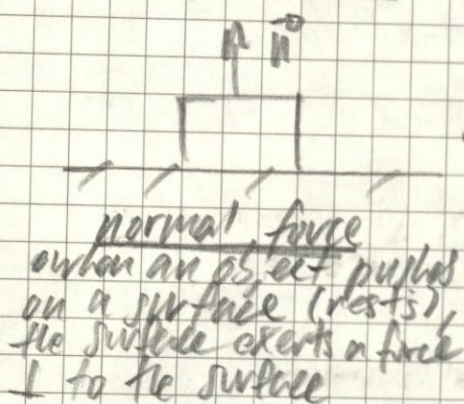 n⃗
normal force
when an object pushes
on a surface (rests),
the surface exerts a force
⊥ to the surface